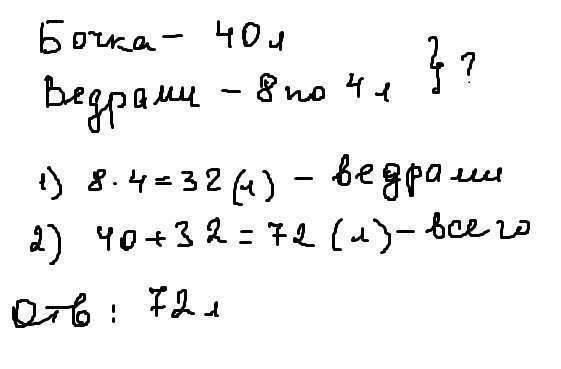 Бочка – 40 л
Ведрами – 8 по 4 л } ?
1) 8 · 4 = 32 (л) – ведрами
2) 40 + 32 = 72 (л) – всего
Отв : 72 л